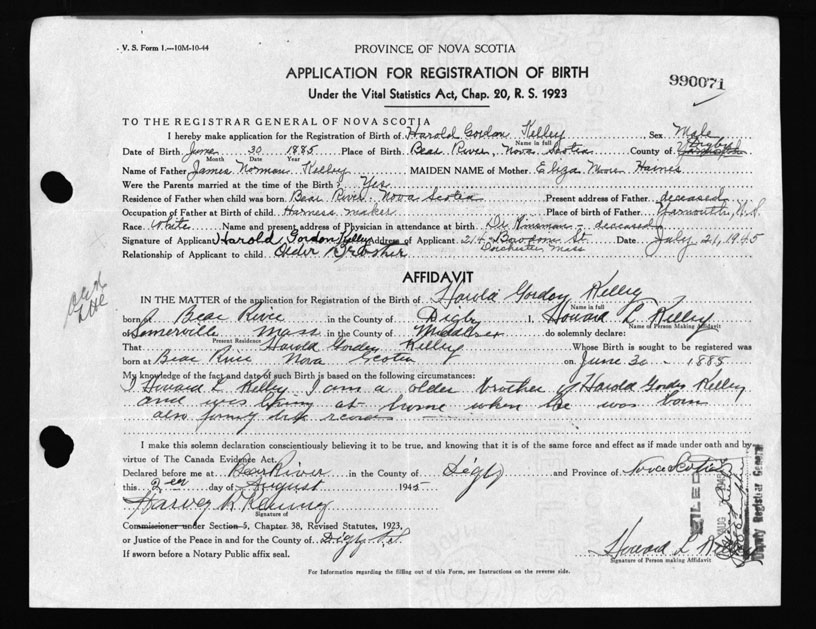 V. S. Form 1.—10M-10-44
PROVINCE OF NOVA SCOTIA
APPLICATION FOR REGISTRATION OF BIRTH
990071
Under the Vital Statistics Act, Chap. 20, R. S. 1923
TO THE REGISTRAR GENERAL OF NOVA SCOTIA
I hereby make application for the Registration of Birth of Harold Gordon Kelley Sex Male
Name in full
Date of Birth June 30 1885 Place of Birth Bear River, Nova Scotia County of Digby
Month Date Year
Name of Father James Norman Kelley MAIDEN NAME of Mother Eliza Moore Haines
Were the Parents married at the time of Birth? Yes
Residence of Father when child was born Bear River Nova Scotia Present address of Father deceased
Occupation of Father at Birth of child Harness maker Place of birth of Father Yarmouth, N.S.
Race White Name and present address of Physician in attendance at birth Dr Kinsman - deceased
Signature of Applicant Harold Gordon Kelley Address of Applicant 214 Bowdoin St. Date July 21, 1945
Dorchester Mass
Relationship of Applicant to child Older Brother
AFFIDAVIT
IN THE MATTER of the application for Registration of the Birth of Harold Gordon Kelley
Name in full
born at Bear River in the County of Digby I, Howard L Kelley
Name of Person Making Affidavit
of Somerville Mass in the County of Middlsex do solemnly declare:
Present Residence
That Harold Gordon Kelley Whose Birth is sought to be registered was
born at Bear River Nova Scotia on June 30 - 1885
My knowledge of the fact and date of such Birth is based on the following circumstances:
I Howard L Kelley I am a older brother of Harold Gordon Kelley
and was living at home when he was born
also family
I make this solemn declaration conscientiously believing it to be true, and knowing that it is of the same force and effect as if made under oath and by
virtue of The Canada Evidence Act.
Declared before me at Bear River in the County of Digby and Province of Nova Scotia
this 2 day of August 1945
Harvey
Signature of
Commissioner under Section 5, Chapter 38, Revised Statutes, 1923,
or Justice of the Peace in and for the County of Digby N.S.
If sworn before a Notary Public affix seal.
Howard L Kelley
Signature of Person making Affidavit
For Information regarding the filling out of this Form, see Instructions on the reverse side.
FILED
AUG
Deputy Registrar General